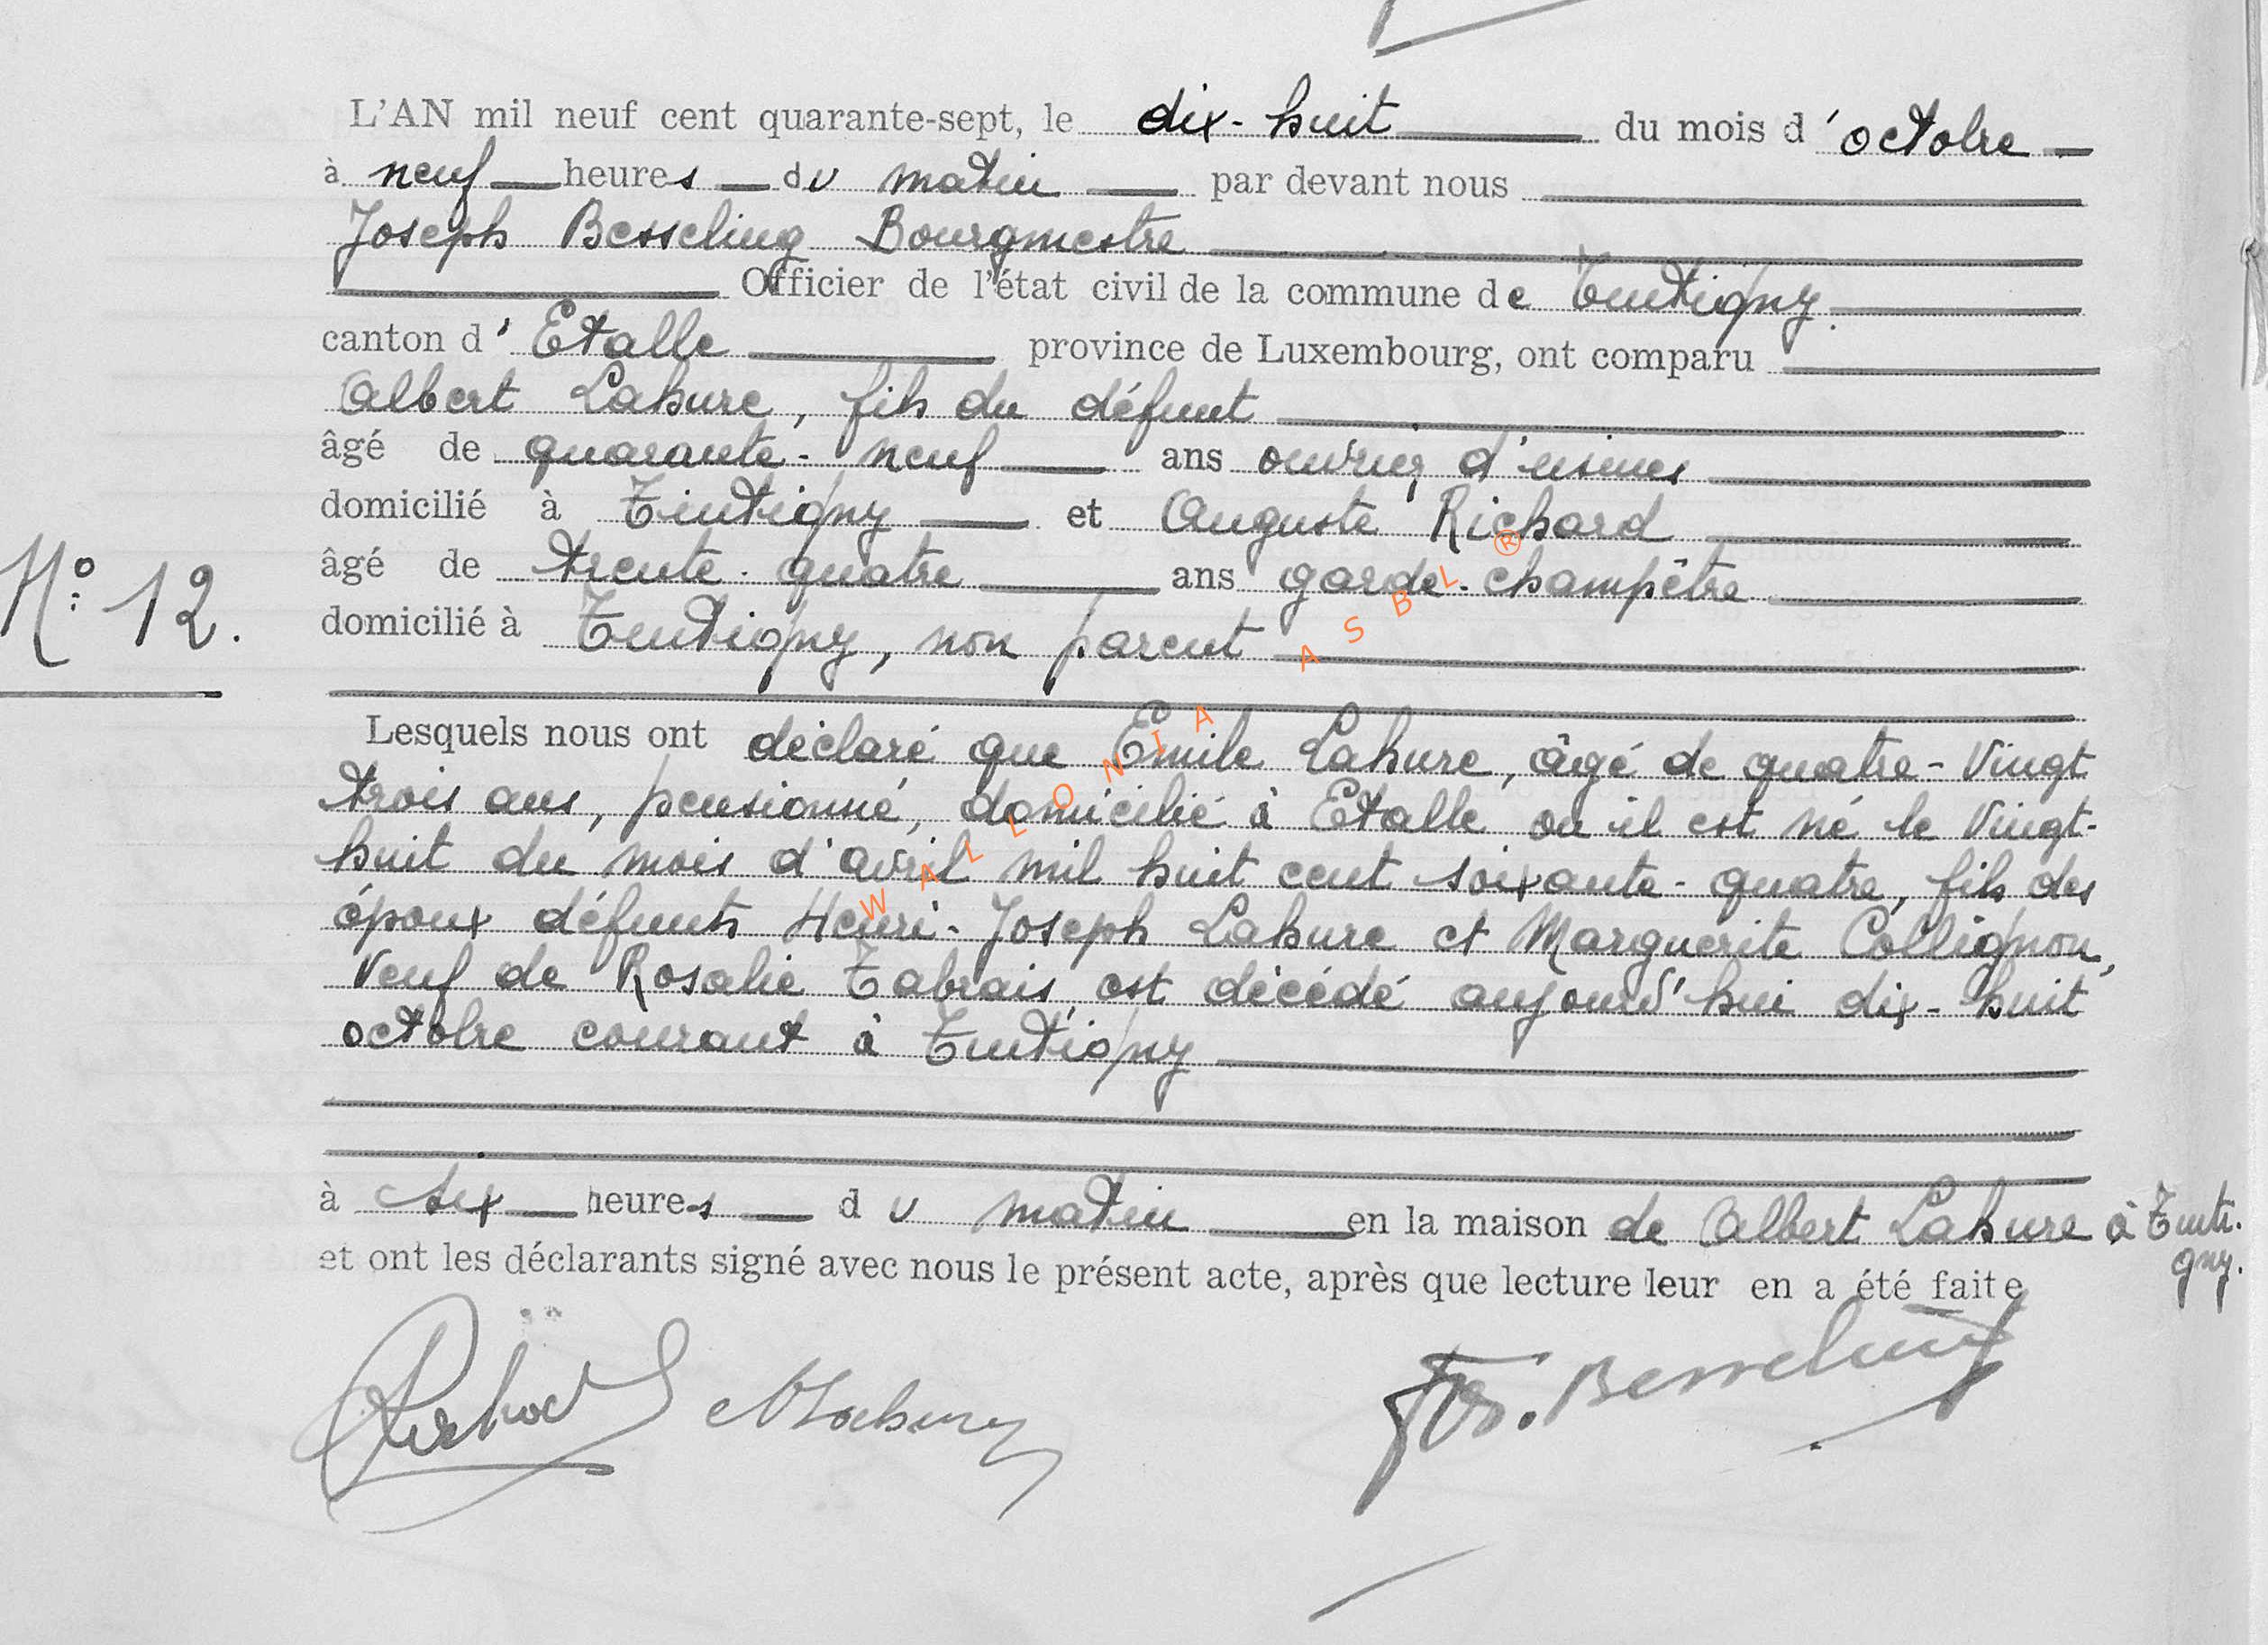 L'AN mil neuf cent quarante-sept, le dix-huit du mois d'octobre
à neuf heures du matin par devant nous
Joseph Besseling Bourgmestre
Officier de l'état civil de la commune de Tintigny
canton d'Etalle province de Luxembourg, ont comparu
Albert Lahure, fils du défunt
âgé de quarante-neuf ans ouvrier d'usines
domicilié à Tintigny et Auguste Richard
âgé de trente-quatre ans garde-champêtre
N° 12.
domicilié à Tintigny, non parent
Lesquels nous ont déclaré que Emile Lahure, âgé de quatre-vingt
trois ans, pensionné, domicilié à Etalle où il est né le vingt-
huit du mois d'avril mil huit cent soixante-quatre, fils des
époux défunts Henri-Joseph Lahure et Marguerite Collignon,
veuf de Rosalie Tabrais, est décédé aujourd'hui dix-huit
octobre courant à Tintigny
à six heures du matin en la maison de Albert Lahure à Tinti-
gny.
et ont les déclarants signé avec nous le présent acte, après que lecture leur en a été faite
Richard ALahure Jos. Besseling
WALLONIA ASBL ®